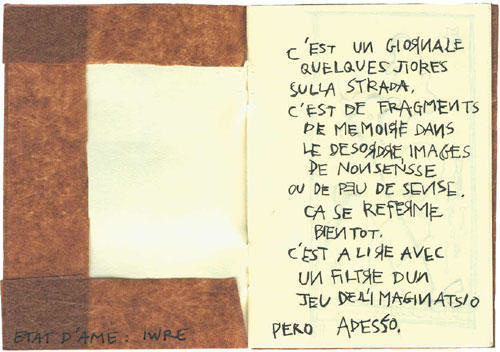 ETAT D'AME: IWRE
C'EST UN GIORNALE
QUELQUES JIORES
SULLA STRADA.
C'EST DE FRAGMENTS
DE MEMOIRE DANS
LE DESORDRE IMAGES
DE NONSENSSE
OU DE PEU DE SENSE.
CA SE REFERME
BIENTOT.
C'EST A LIRE AVEC
UN FILTRE D'UN
JEU DELL'IMAGINATSIO
PERO ADESSO.